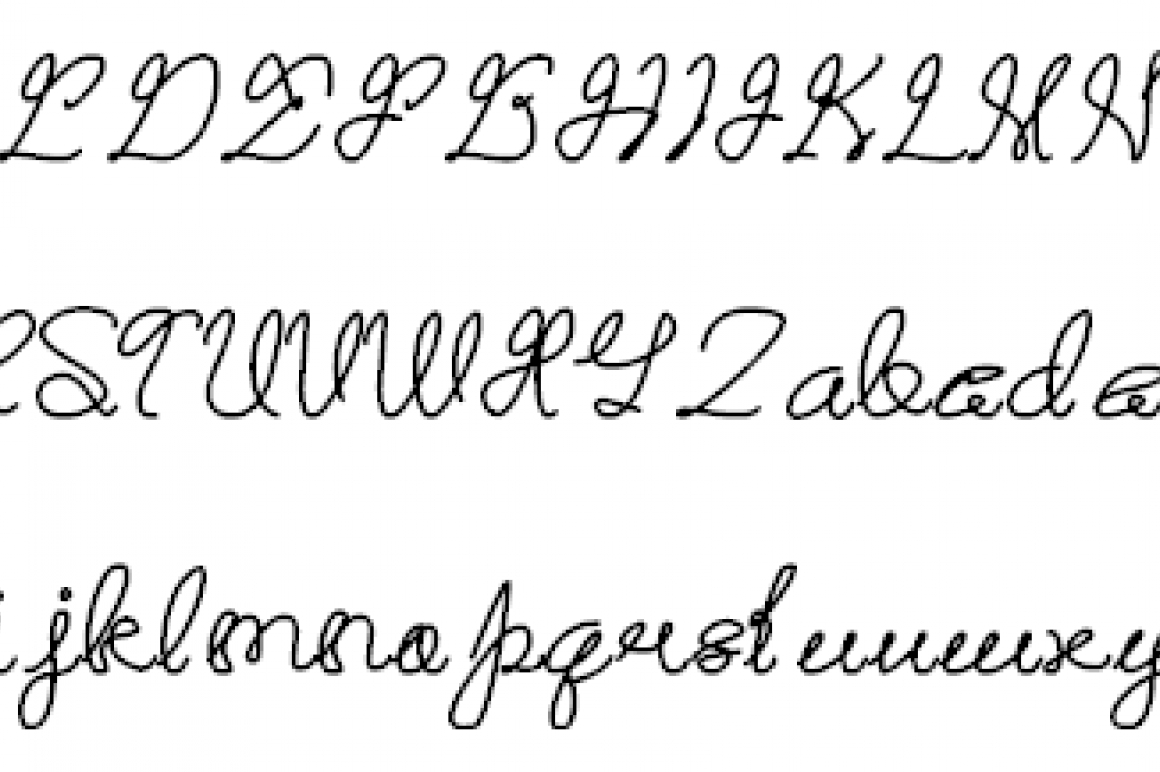 CDEFGHIJKLMN
RSTUVWXYZabcde
ijklmnopqrstuvwxy